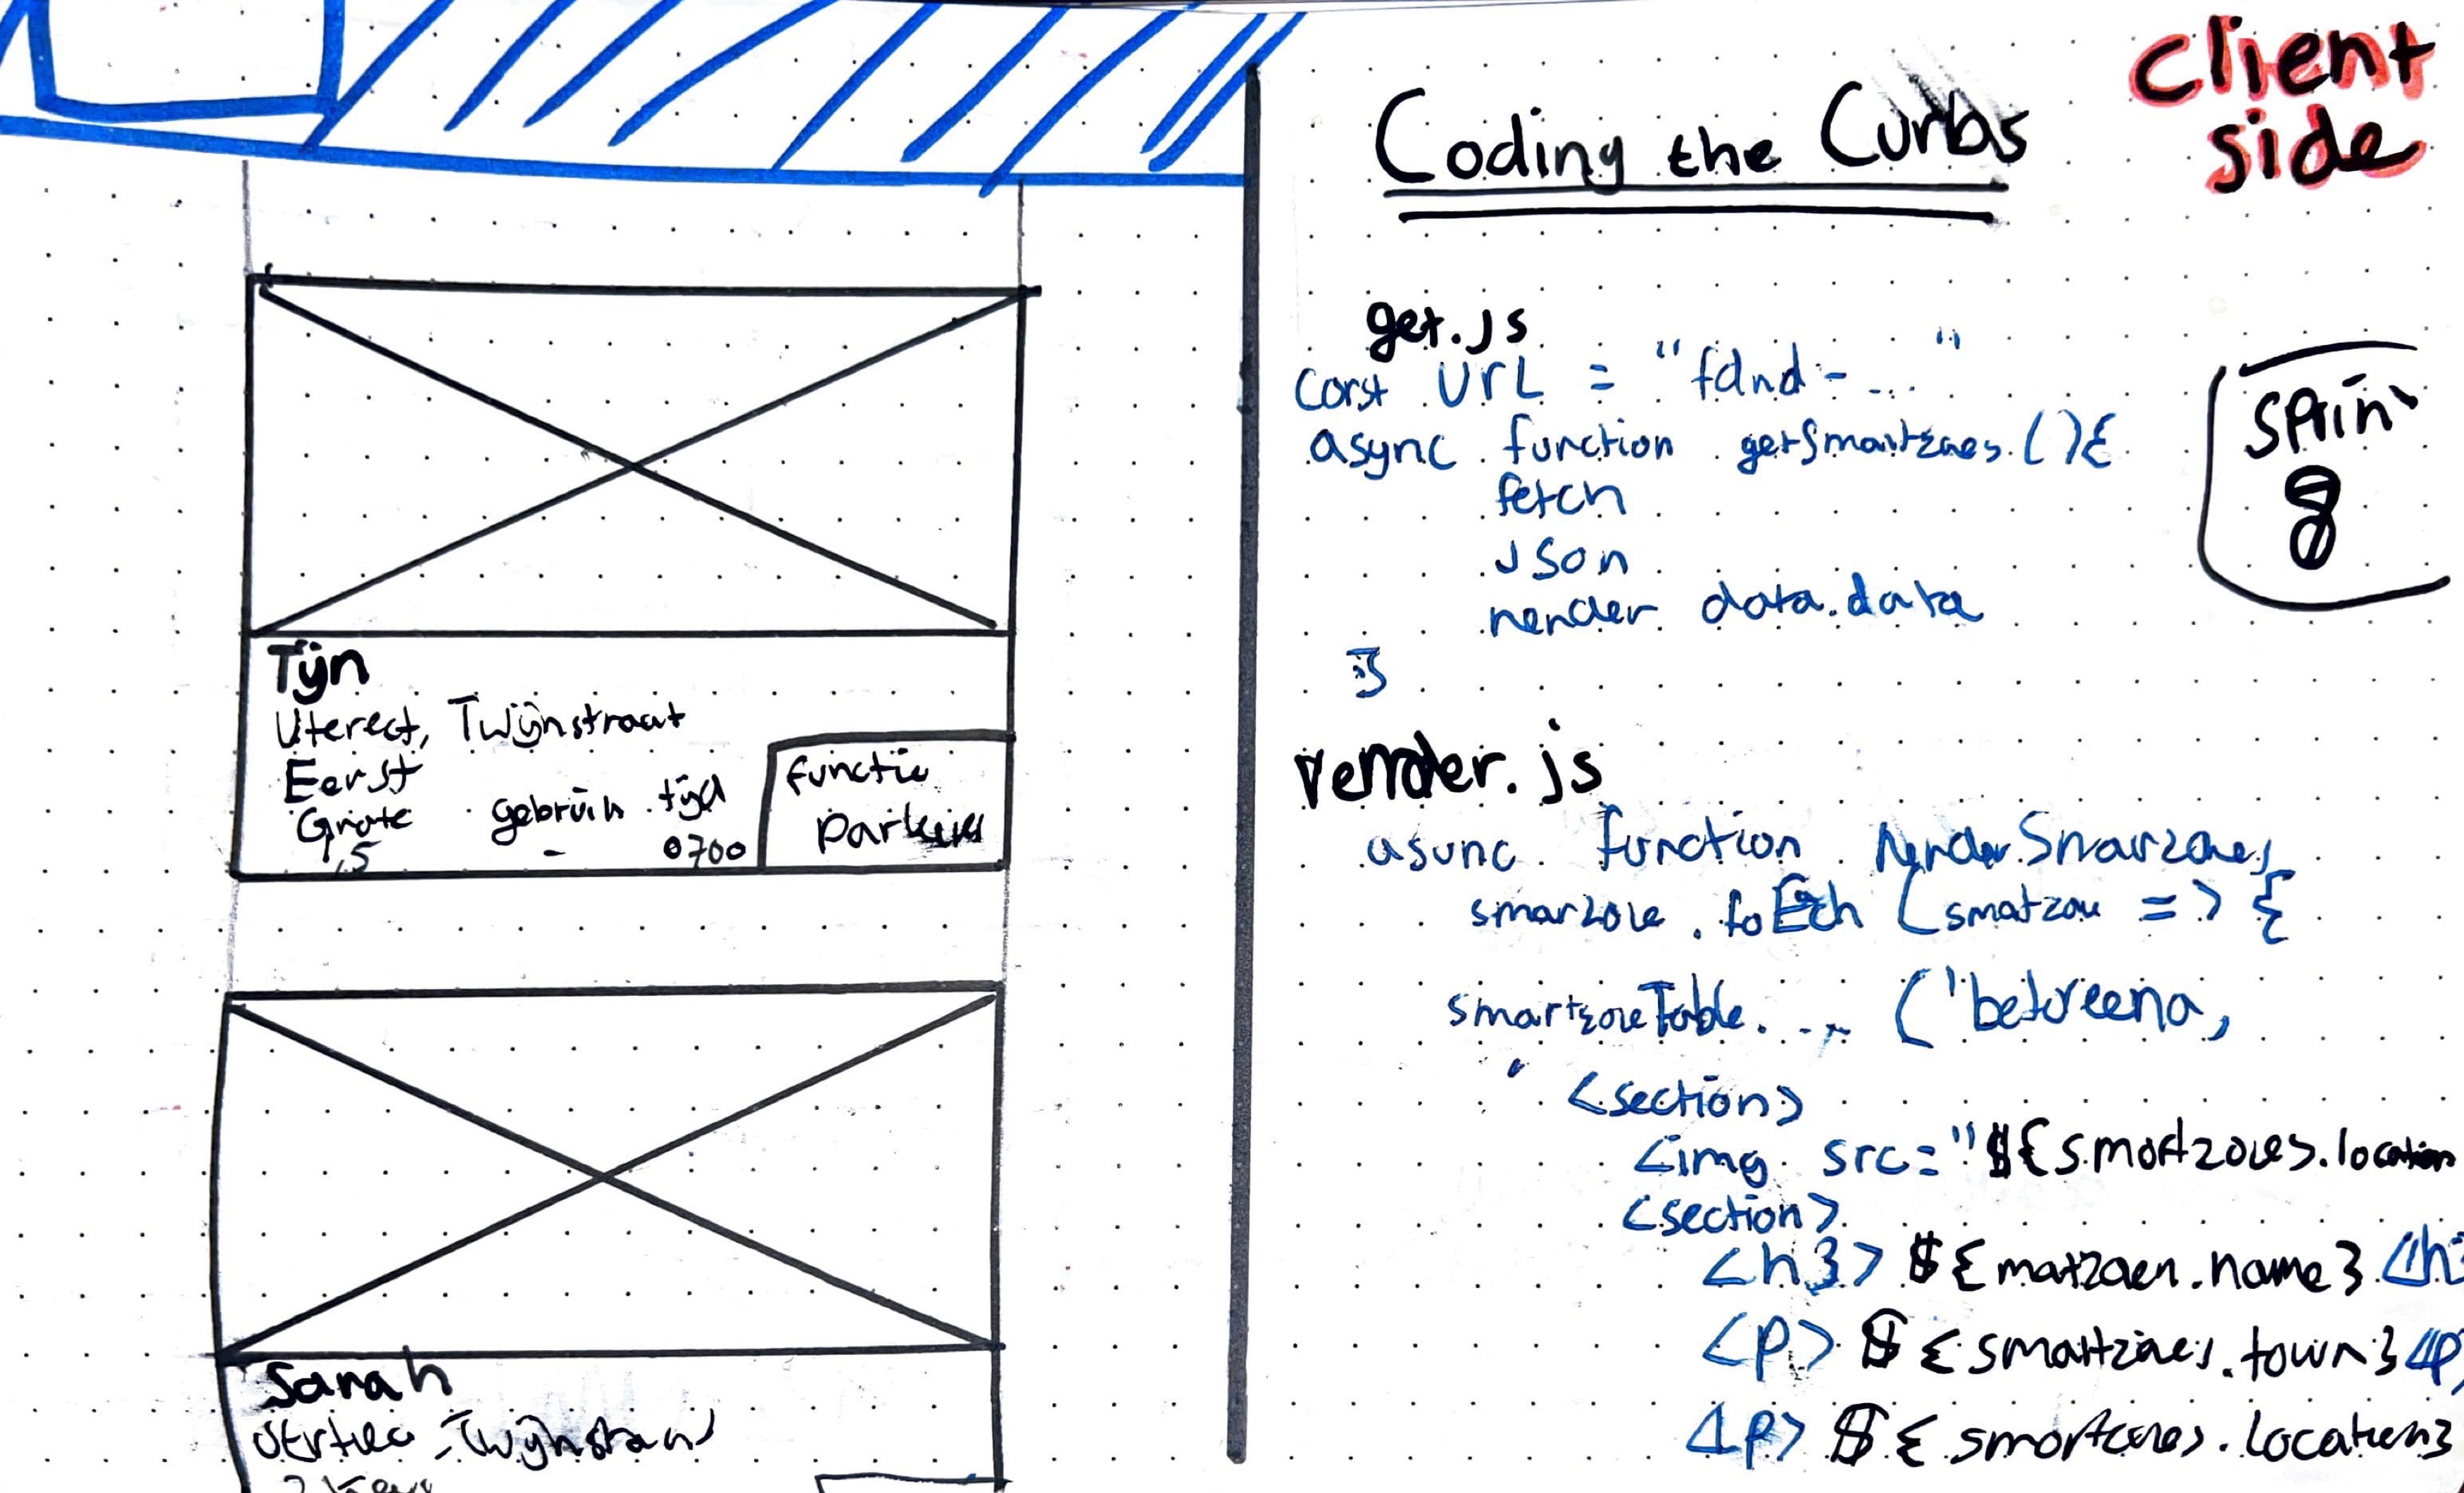 Tijn
Uterect, Twijnstraat
Eerst
Grote gebruik tijd
1,5 - 0700
functie
parkeren
Sarah
Coding the Curbs
client
side
get.js
const url = "fdnd-..."
async function getSmartzones () {
fetch
json
render data.data
}
Sprin
8
render.js
async function renderSmarzones
smarzone.foEch (smatzon => {
smartzoneTable. ... ('beforeend,
`<section>
<img src="${smartzones.location
<section>
<h3> ${matzoen.name} </h3
<p> ${smartzones.town} </p>
<p> ${smartzones.location}